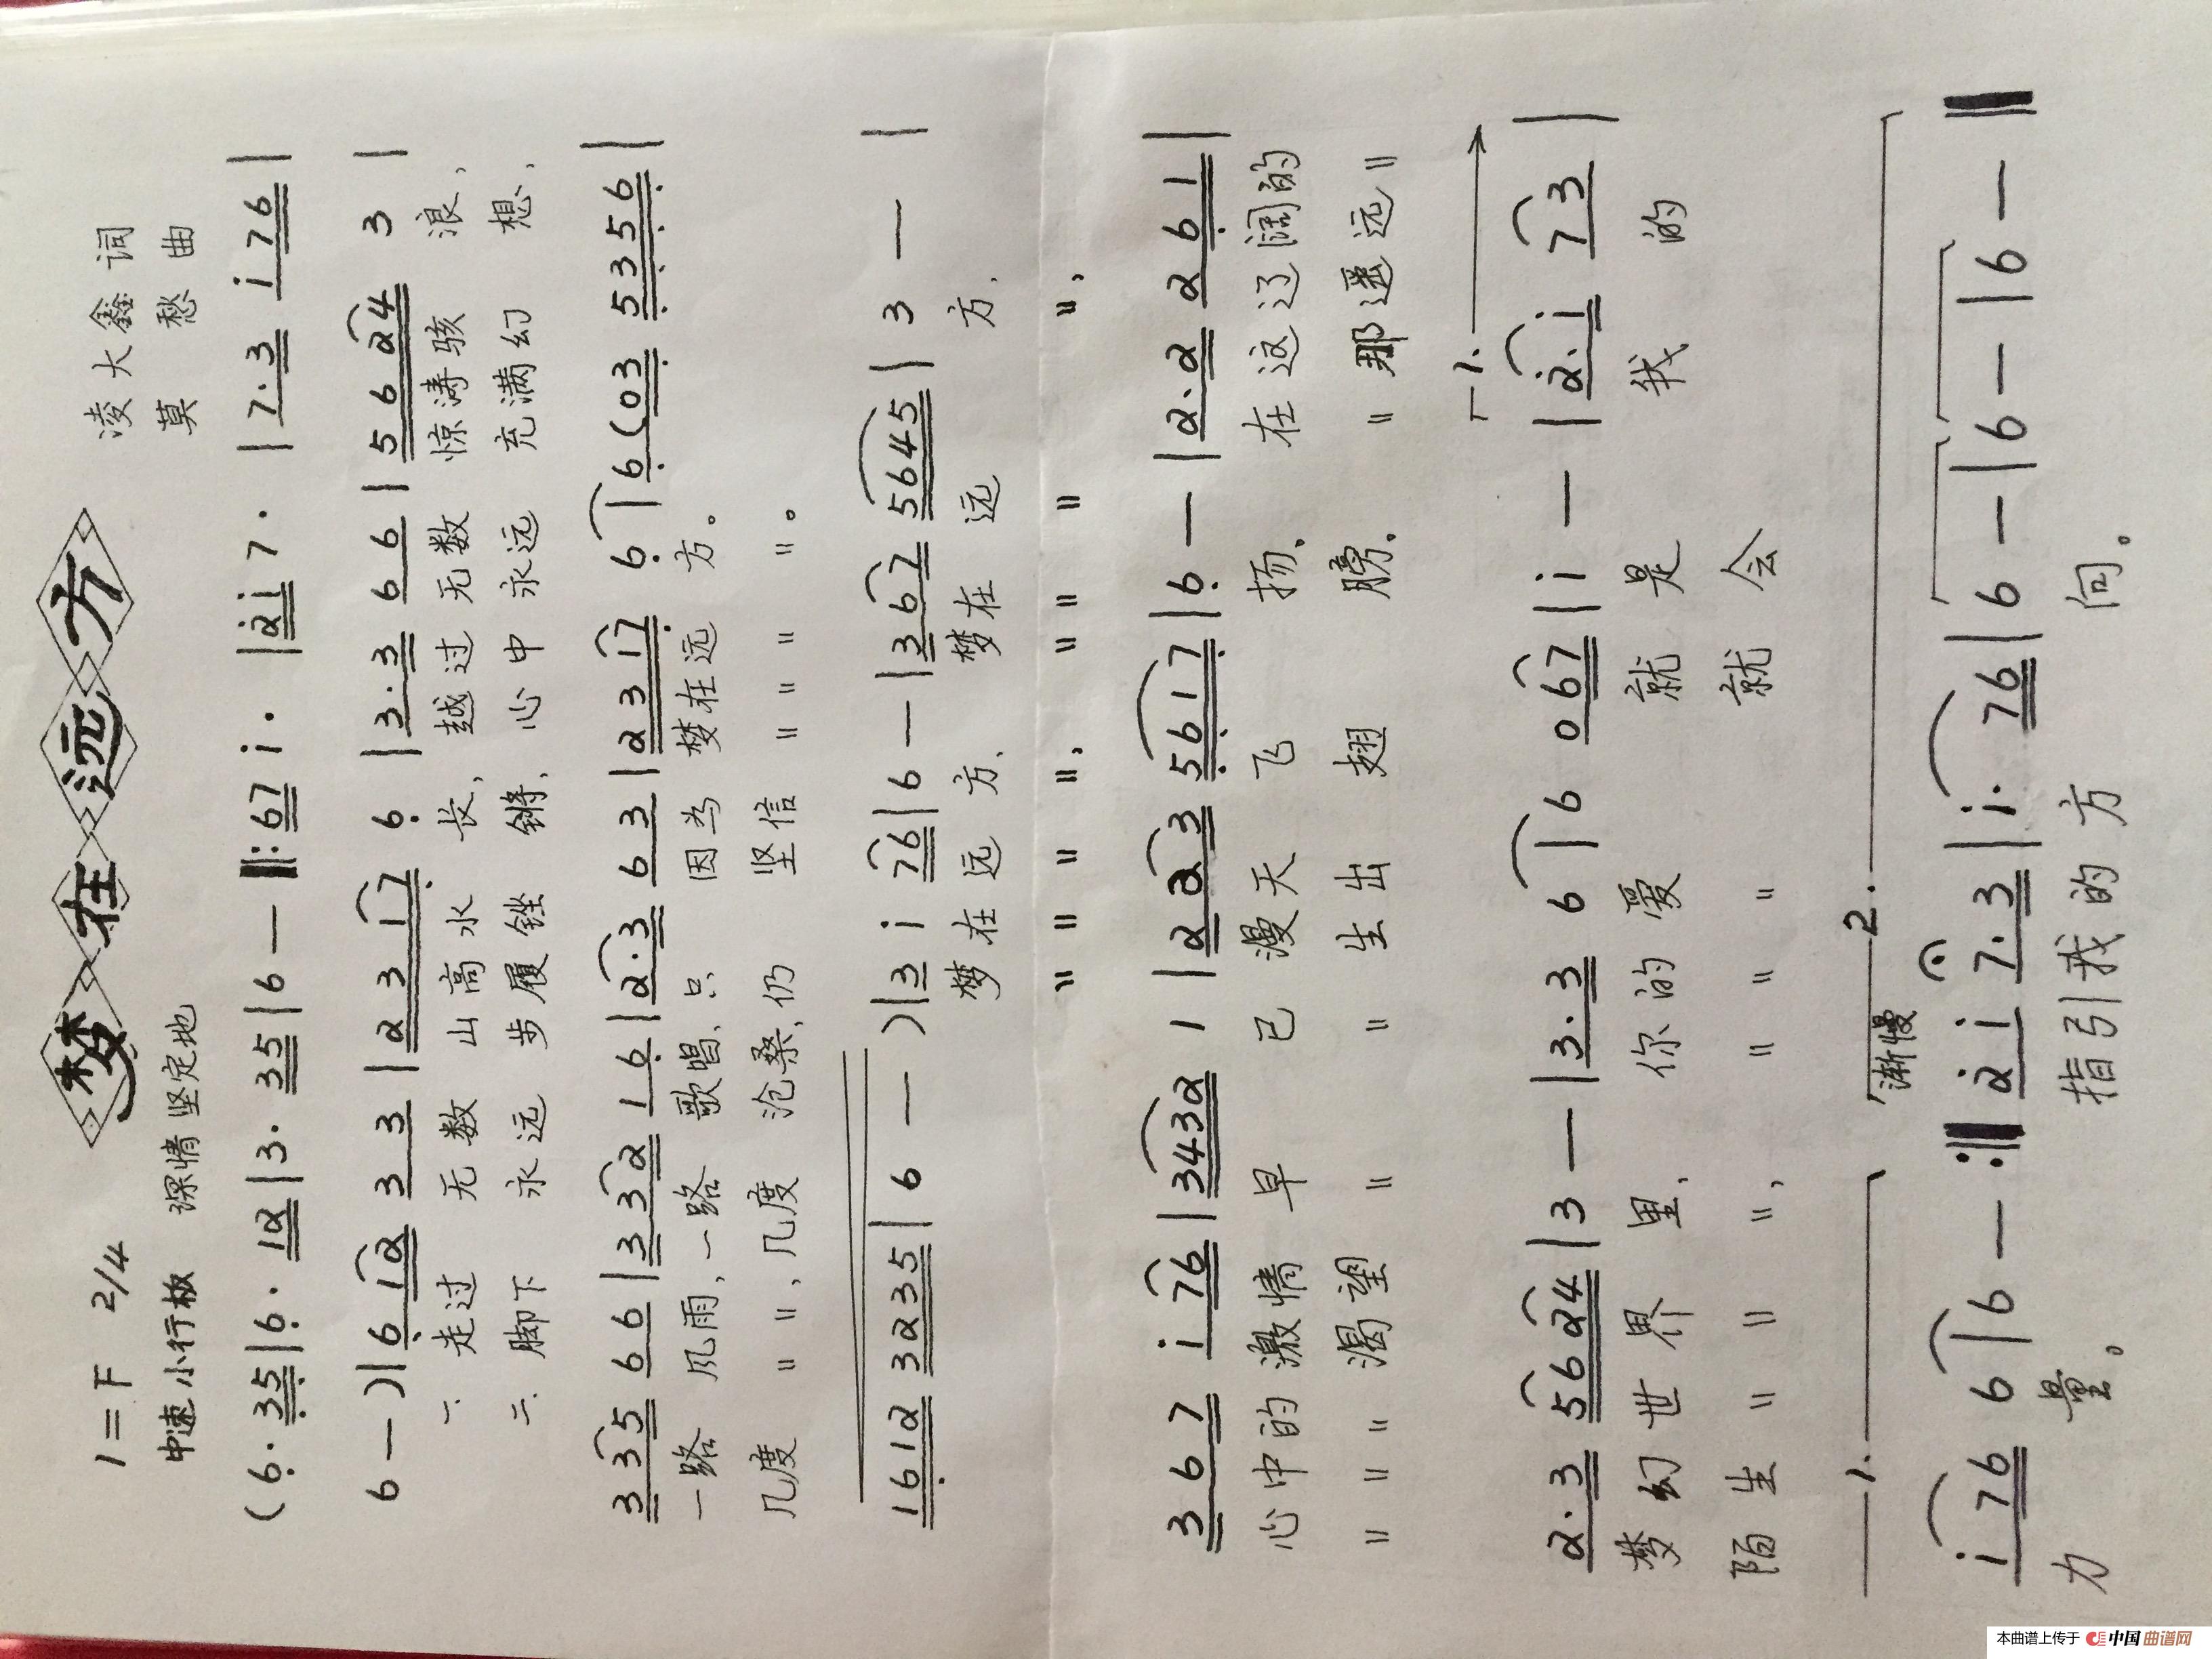 梦在远方
1=F 2/4
凌大鑫 词
中速小行板 深情坚定地
莫愁 曲
(6· 35|6· 12|3· 35|6 — ‖: 67 i· |2i 7· |7·3 i76|
6 — )|6 12 3 3 |2317 6 |3·3 6 6 |5624 3 |
一、走过 无数 山高水长, 越过无数 惊涛骇浪,
二、脚下 永远 步履铿锵, 心中永远 充满幻想,
335 66 |332 16 |2·3 63 |2317 6 |6 (03 5356|
一路风雨,一路歌唱,只因为梦在远方。
几度〃〃,几度沧桑,仍坚信〃〃〃〃。
1612 3235 |6 — )|3 i 76|6 — |3 67 5645|3 — |
梦在远方, 梦在远方,
〃〃〃〃, 〃〃〃〃,
3 6 7 i 76 |3432 1 |2 23 5617|6 — |2·2 2 61 |
心中的激情早已漫天飞扬, 在这辽阔的
〃〃〃渴望〃〃生出翅膀, 〃那遥远〃
1.
2·3 5624 |3 — |3·3 6 |6 067 |i — |2·i 73 |
梦幻世界里, 你的爱 就是我的
陌生〃〃〃, 〃〃〃 就会
1.
2.
渐慢
i 76 6 |6 — :‖ 2i 7·3 |i· 76 |6 — |6 — |6 — ‖
力量。 指引我的方向。
本曲谱上传于 中国曲谱网